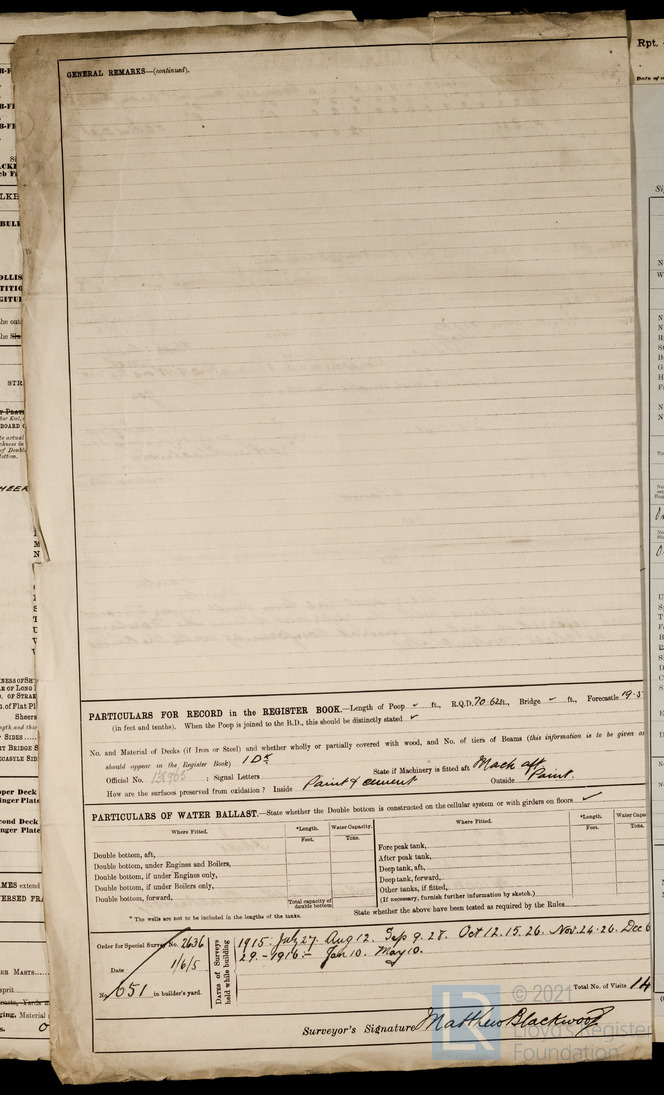 GENERAL REMARKS—(continued).
PARTICULARS FOR RECORD in the REGISTER BOOK.—Length of Poop ✓ ft., R.Q.D. 70.62 ft., Bridge ✓ ft., Forecastle 19.5
(in feet and tenths). When the Poop is joined to the B.D., this should be distinctly stated ✓
No. and Material of Decks (if Iron or Steel) and whether wholly or partially covered with wood, and No. of tiers of Beams (this information is to be given as
should appear in the Register Book) 1 Dk
Official No. ; Signal Letters State if Machinery is fitted aft Mach aft
How are the surfaces preserved from oxidation? Inside Paint & cement Outside Paint.
PARTICULARS OF WATER BALLAST.—State whether the Double bottom is constructed on the cellular system or with girders on floors ✓
Where Fitted. *Length. Water Capacity. Where Fitted. *Length. Water Capa
Feet. Tons. Feet. Tons.
Double bottom, aft, Fore peak tank,
Double bottom, under Engines and Boilers, After peak tank,
Double bottom, if under Engines only, Deep tank, aft,
Double bottom, if under Boilers only, Deep tank, forward,
Double bottom, forward, Other tanks, if fitted,
Total capacity of double bottom (If necessary, furnish further information by sketch.)
* The wells are not to be included in the lengths of the tanks. State whether the above have been tested as required by the Rules
Order for Special Survey No. 2636
Date 1/6/5
No. 651 in builder's yard.
Dates of Surveys held while building
1915. July 27. Aug 12. Sep 9. 28. Oct 12. 15. 26. Nov. 24. 26. Dec 6
29. - 1916:- Jan 10. May 10.
Total No. of Visits 14
Surveyor's Signature Matthew Blackwood
LR © 2021
Lloyd's Register
Foundation
Rpt.